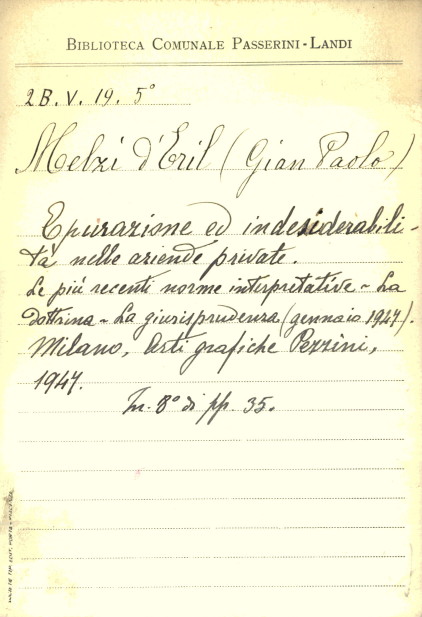 BIBLIOTECA COMUNALE PASSERINI-LANDI
2B.V.19.5°
Melzi d'Eril (Gian Paolo)
Epurazione ed indesiderabili-
tà nelle aziende private.
Le più recenti norme interpretative - La
dottrina - La giurisprudenza (gennaio 1947).
Milano, Arti grafiche Pezzini,
1947.
In. 8° di pp. 35.